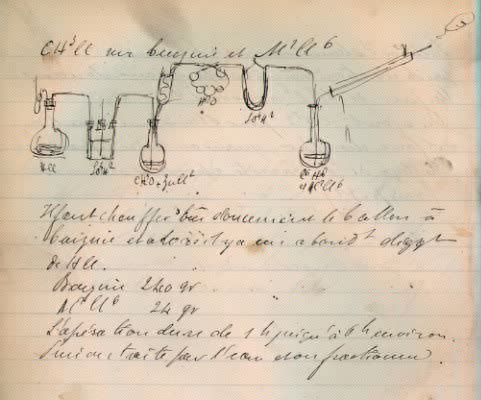 CH³Cl sur benzine et Al²Cl⁶
HCl
SO⁴H²
CH⁴O + ZnCl²
H²O
SO⁴H²
C⁶H⁶
et Al²Cl⁶
Il faut chauffer très doucement le ballon à
benzine et alors il y a un abondt dégagt
de HCl.
Benzine 240 gr
Al²Cl⁶ 24 gr
L'opération dure de 1h jusqu'à 6h environ.
Ensuite traite par l'eau et on fractionne.